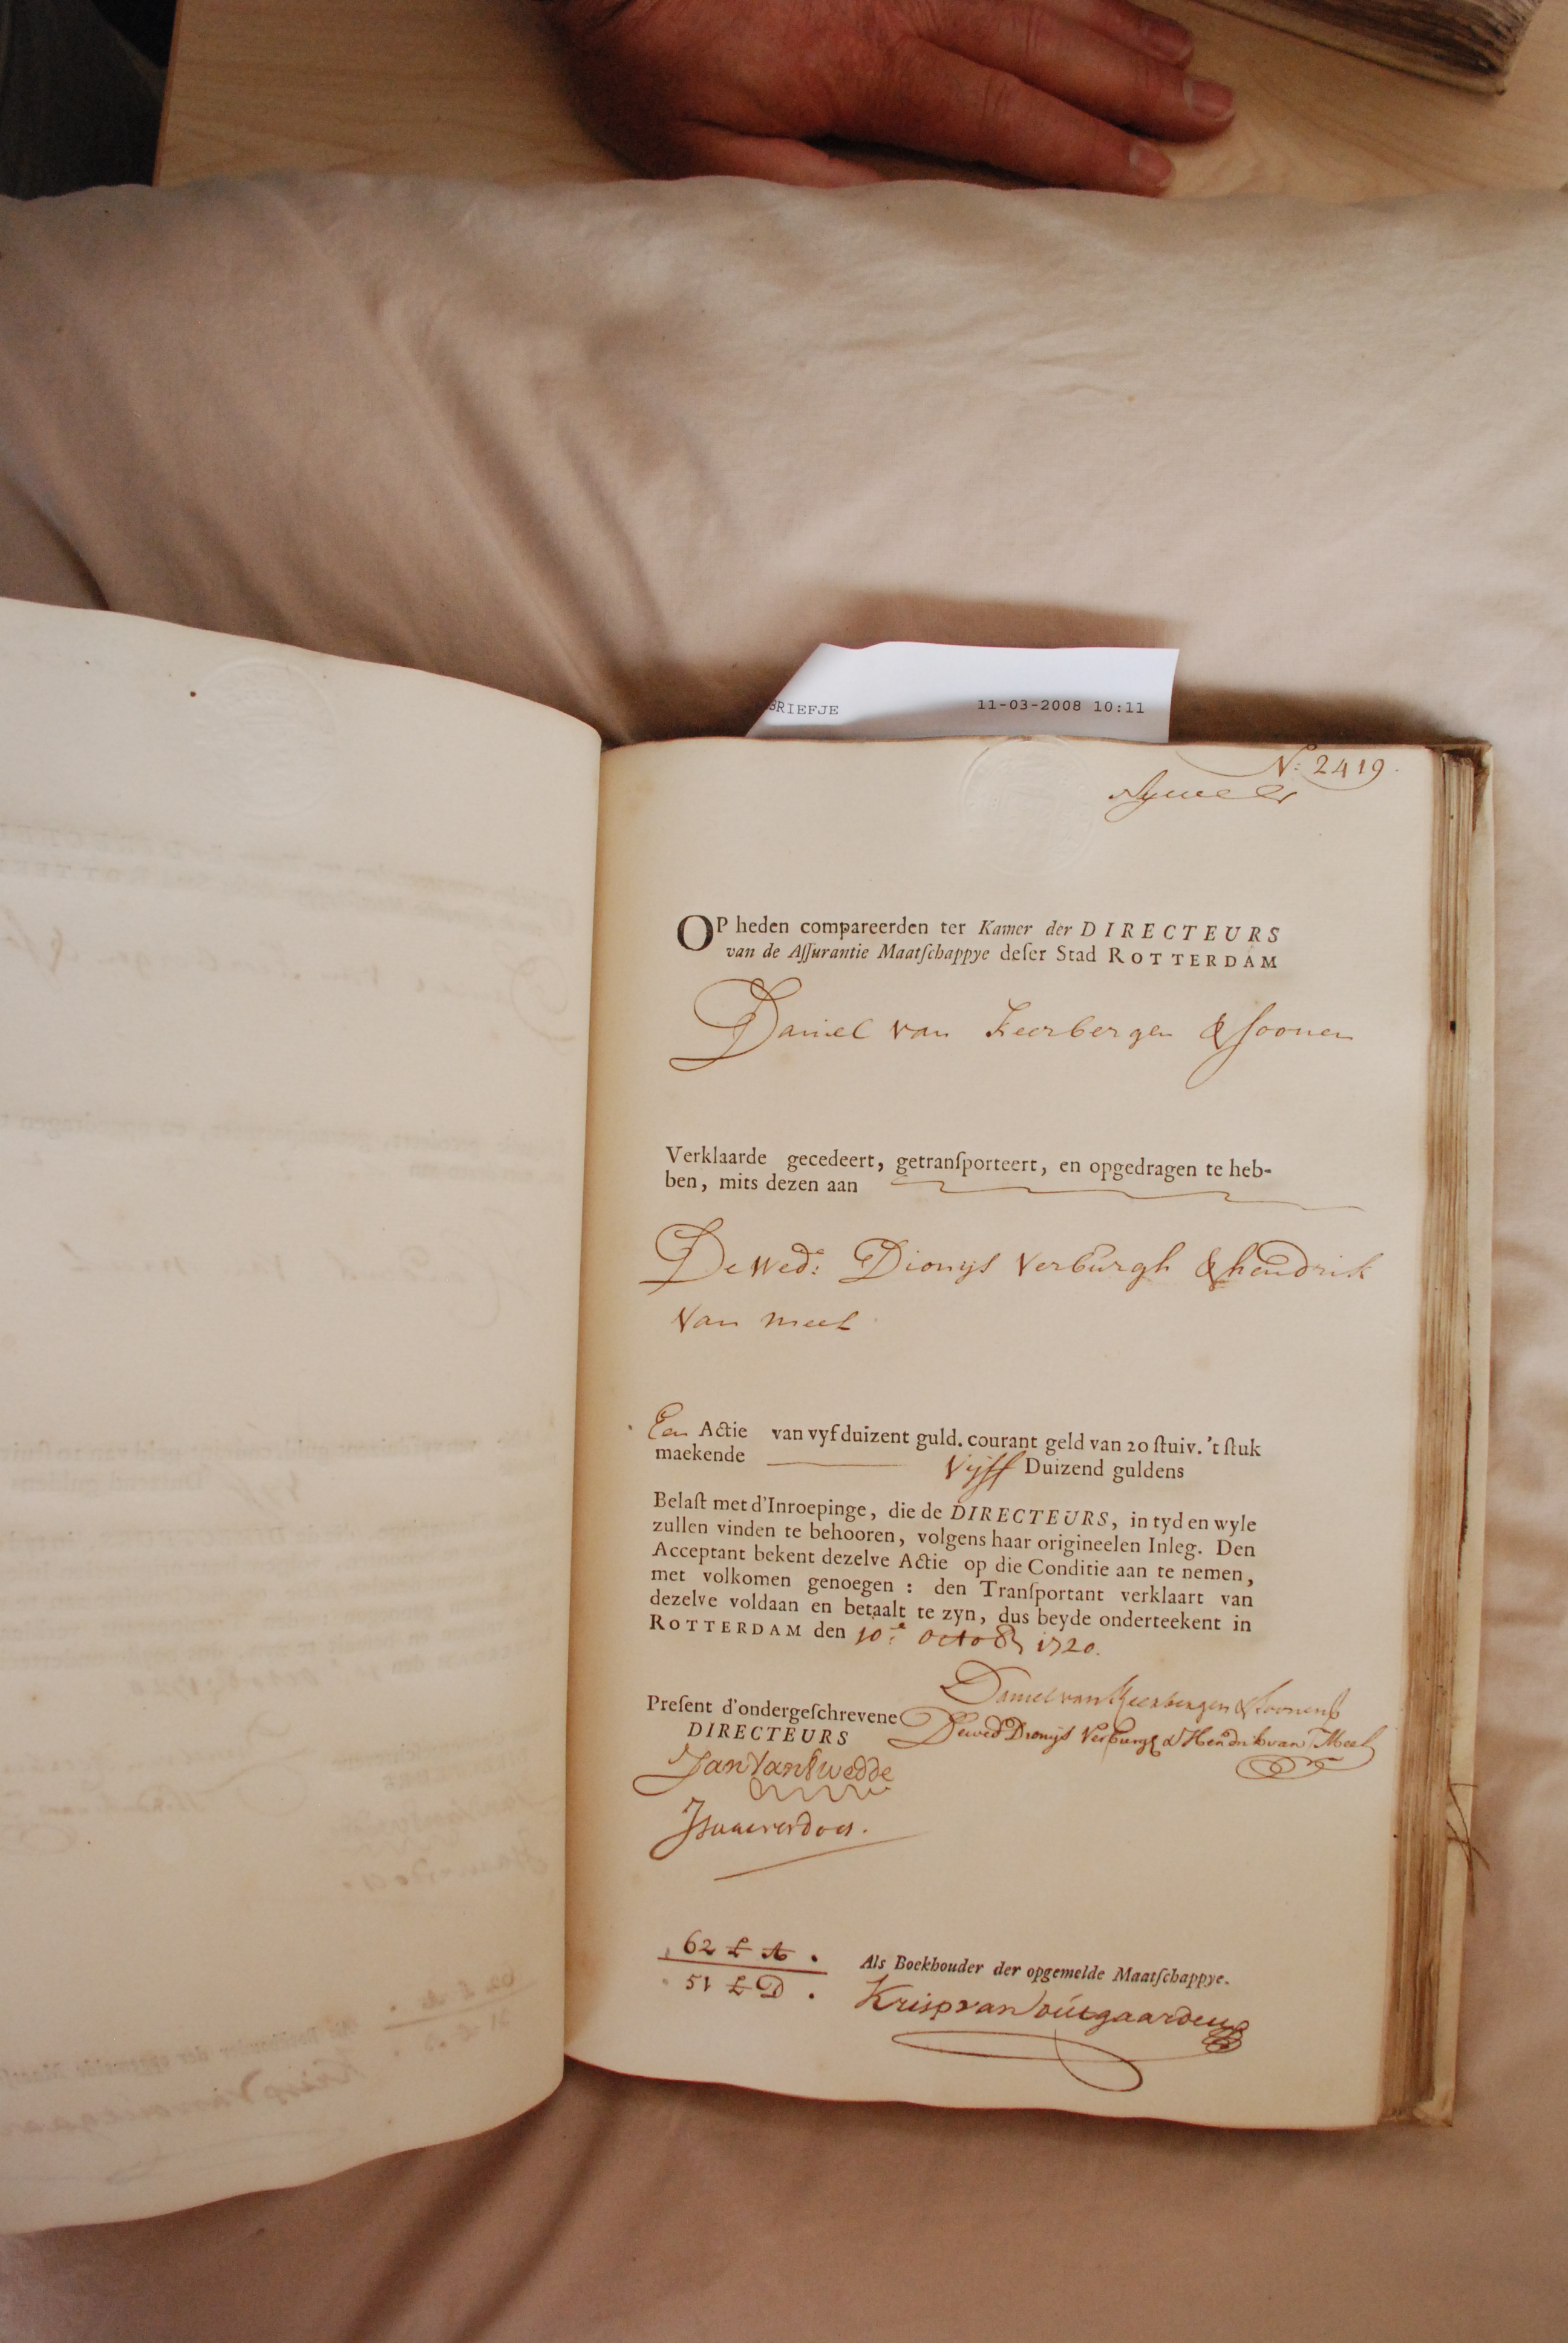 BRIEFJE 11-03-2008 10:11
N: 2419.
OP heden compareerden ter Kamer der DIRECTEURS
van de Aſſurantie Maatſchappye deſer Stad ROTTERDAM
Daniel van Keerbergen & Soonen
Verklaarde gecedeert, getranſporteert, en opgedragen te heb-
ben, mits dezen aan
De Wed: Dionys Verburgh & hendrik
Van meel
Een Actie van vyf duizent guld. courant geld van 20 ſtuiv. 't ſtuk
maekende Vijff Duizend guldens
Belaſt met d'Inroepinge, die de DIRECTEURS, in tyd en wyle
zullen vinden te behooren, volgens haar origineelen Inleg. Den
Acceptant bekent dezelve Actie op die Conditie aan te nemen,
met volkomen genoegen : den Tranſportant verklaart van
dezelve voldaan en betaalt te zyn, dus beyde onderteekent in
ROTTERDAM den 10e Octob 1720.
Daniel van Keerbergen & Soonen
Preſent d'ondergeſchrevene
De wed Dionys Verburgh & Hendrik van Meel
DIRECTEURS
Jan Van
62 £ A.
51 £ D.
Als Boekhouder der opgemelde Maatſchappye.
Krisp van